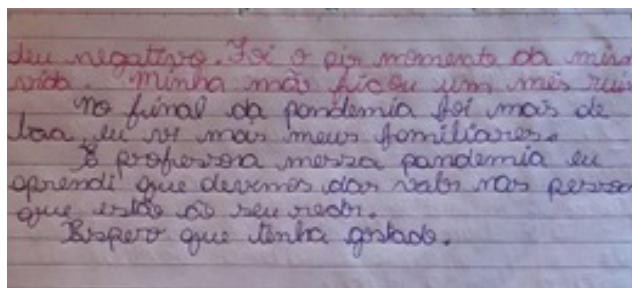 deu negativo. Foi o pior momento da min
vida. Minha mãe ficou um mês rui
No final da pandemia foi mais de
boa, eu vi mais meus familiares.
E professora nessa pandemia eu
aprendi que devemos dar valor nas pesso
que estão ao seu redor.
Espero que tenha gostado.